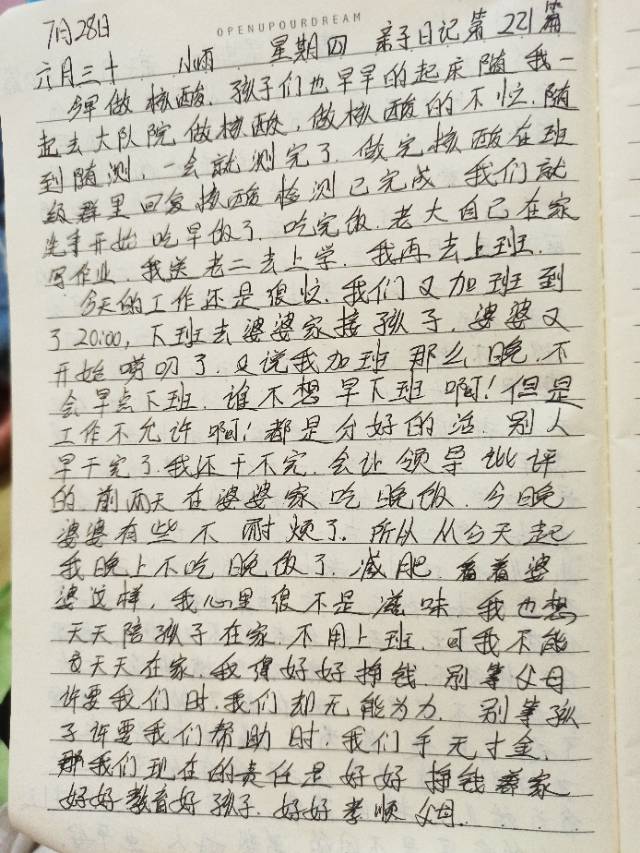 OPENUPOURDREAM
7月28日
六月三十 小雨 星期四 亲子日记第221篇
今早做核酸.孩子们也早早的起床随我一
起去大队院做核酸,做核酸的不忙.随
到随测,一会就测完了.做完核酸在班
级群里回复核酸检测已完成.我们就
洗手开始吃早饭了.吃完饭.老大自己在家
写作业.我送老二去上学.我再去上班.
今天的工作还是很忙.我们又加班到
了20:00,下班去婆婆家接孩子.婆婆又
开始唠叨了.又说我加班那么晚.不
会早点下班.谁不想早下班啊!但是
工作不允许啊!都是分好的活.别人
早干完了.我还干不完.会让领导批评
的.前两天在婆婆家吃晚饭.今晚
婆婆有些不耐烦了.所以从今天起
我晚上不吃晚饭了.减肥.看着婆
婆这样,我心里很不是滋味.我也想
天天陪孩子在家.不用上班.可我不能
天天在家.我得好好挣钱.别等父母
许要我们时.我们却无能为力.别等孩
子许要我们帮助时.我们手无寸金.
我们现在的责任是好好挣钱养家
好好教育好孩子.好好孝顺父母.